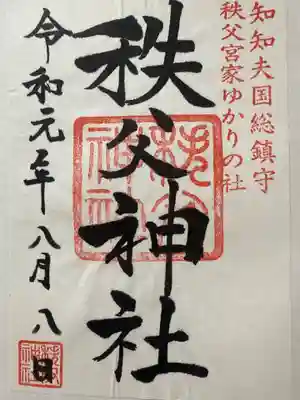 知知夫国総鎮守
秩父宮家ゆかりの社
秩父神社
秩父神社
令和元年八月八日